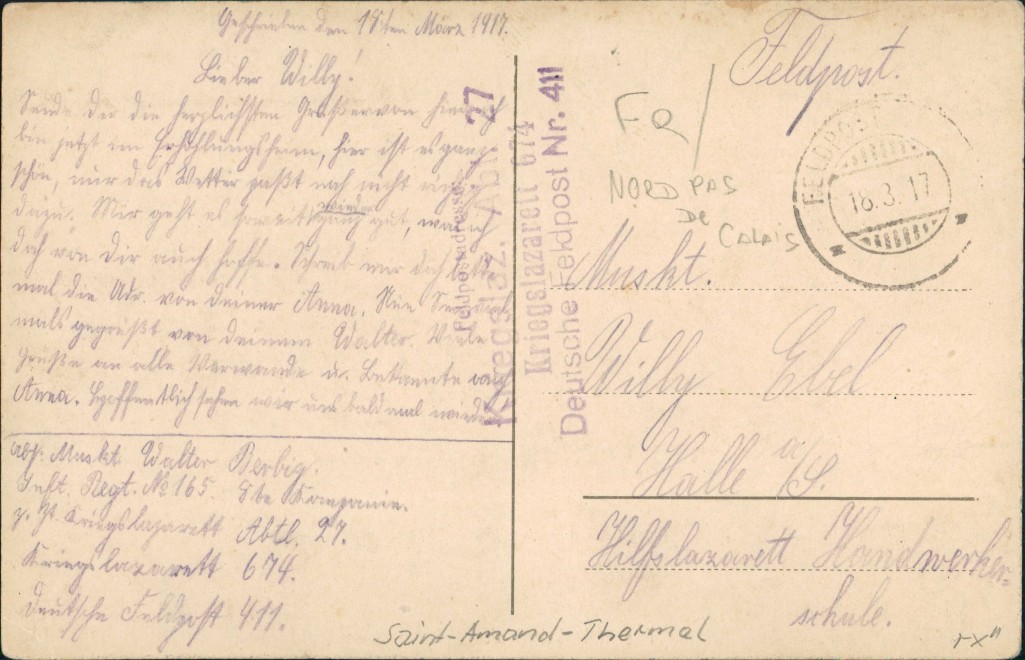 Geschrieben den 18ten März 1917.
Lieber Willy!
Sende dir die herzlichsten Grüße von hier. Ich
bin jetzt im Erhohlungsheim, hier ist es ganz
schön, nur das Wetter paßt noch nicht richtig
dazu. Mir geht es soweit wieder ganz gut, was ich
doch von Dir auch hoffe. Schreib mir doch bitte
mal die Adr. von deiner Anna. Nun
mals gegrüßt von deinem Walter. Viele
Grüße an alle Verwande u. Bekannte auch
Anna. Hoffentlich sehen wir uns bald mal wieder.
Abs. Muskt. Walter Berbig.
Inft. Regt. No 165. 8te Kompanie.
z. Zt. Kriegslazarett Abtl. 27.
Kriegslazarett 674.
Deutsche Feldpost 411.
Feldpostadresse
Kriegslaz. Abt. 27
Kriegslazarett 674
Deutsche Feldpost Nr. 411
Feldpost.
FELDPOST
18.3.17
FR
NORD PAS
De
CALAIS
Muskt.
Willy Ebel
Halle a/S.
Hilfslazarett Handwerker-
schule.
Saint-Amand-Thermal